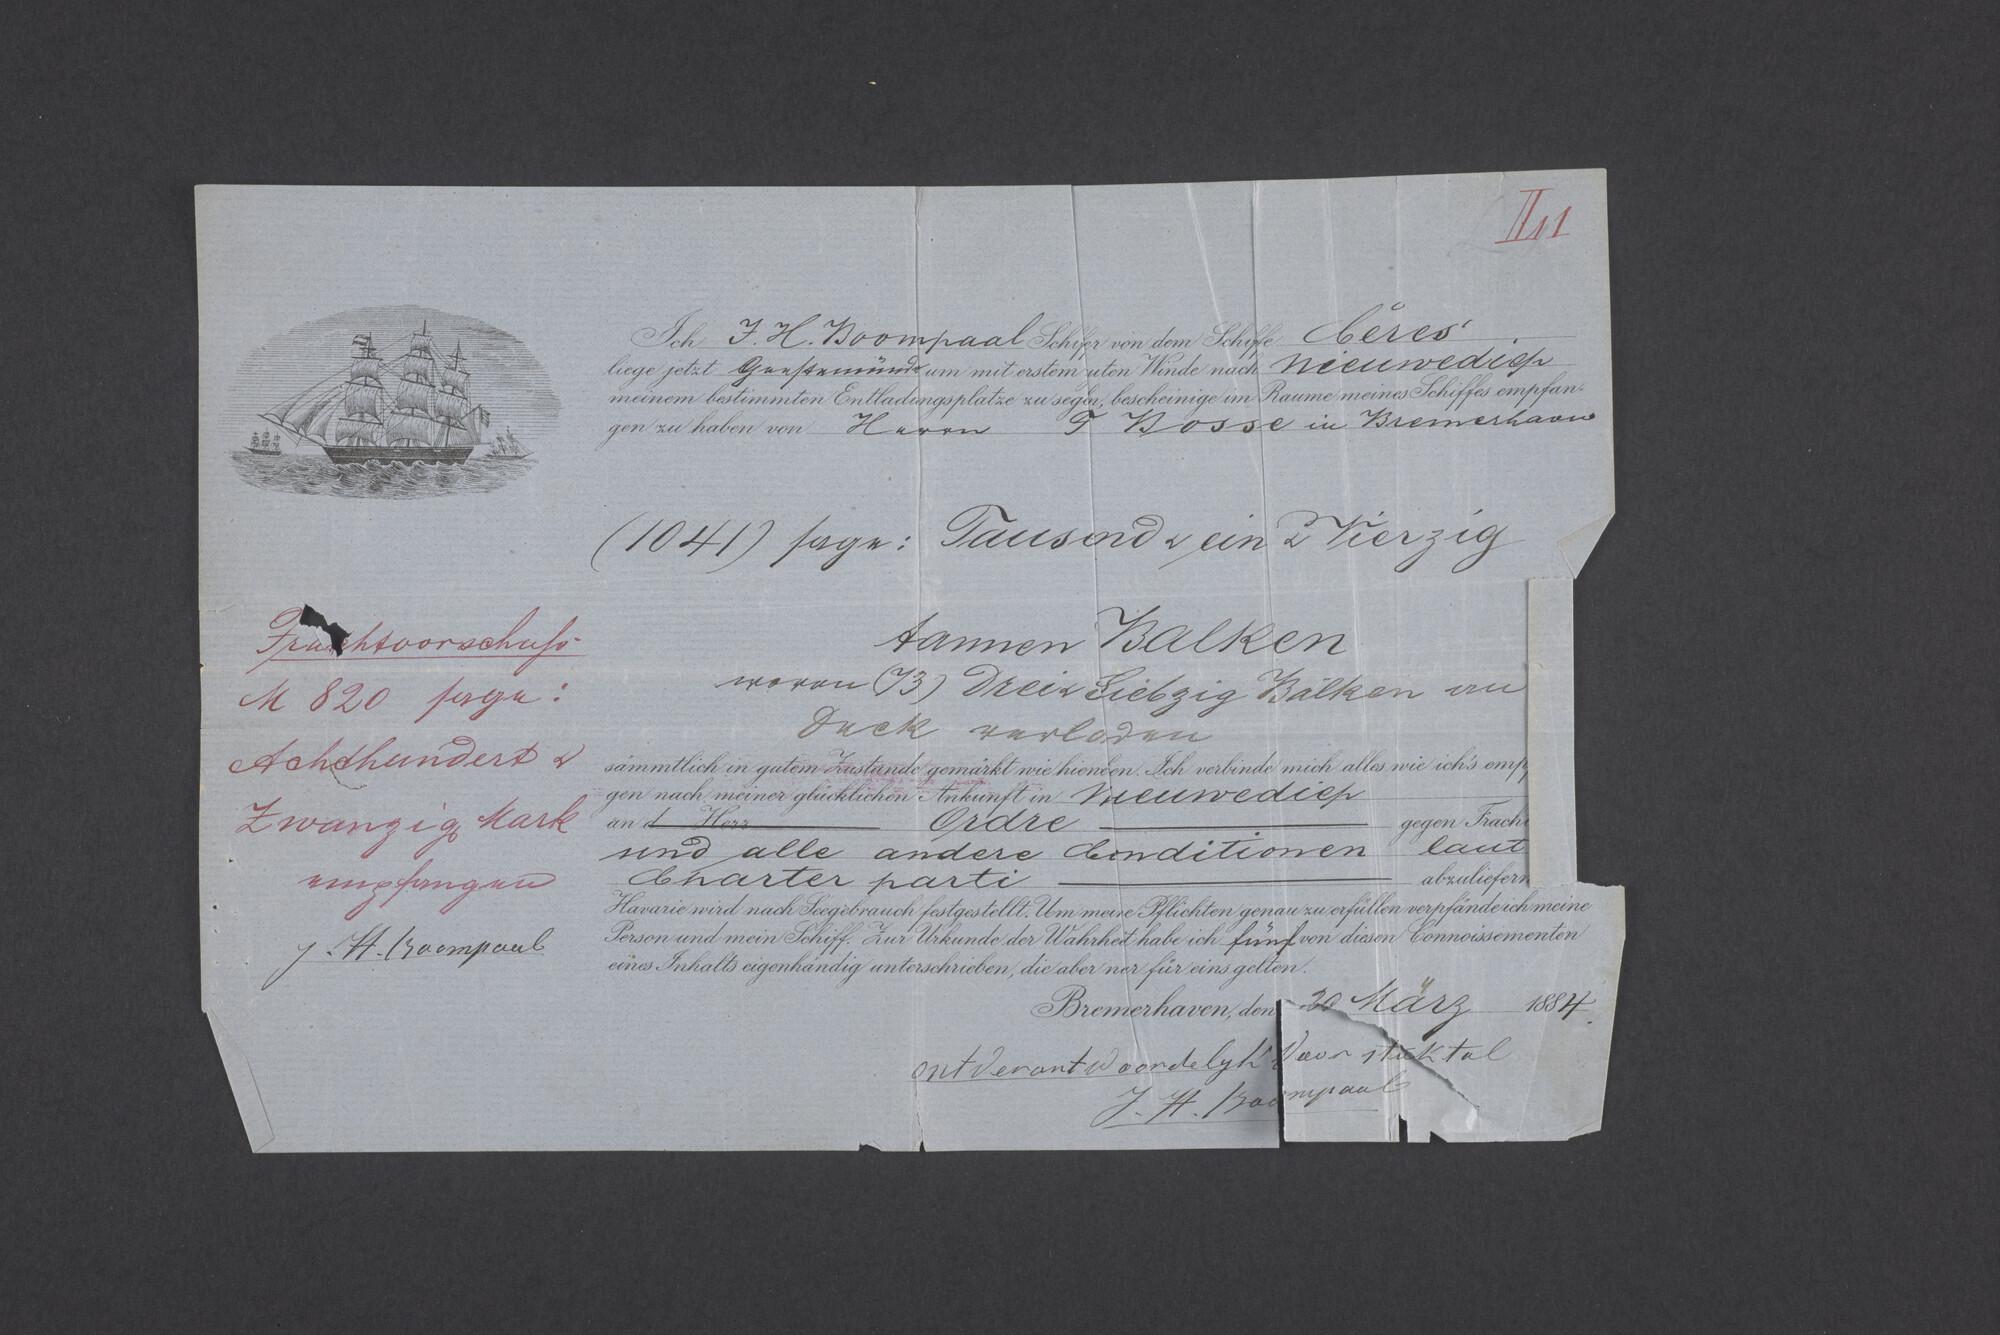 II
Ich J. H. Boompaal Schifer von dem Schiffe Céres
liege jetzt Geestemünde um mit erstem guten Winde nach Nieuwediep
meinem bestimmten Entladungsplatze zu segeln, bescheinige im Raume meines Schiffes empfan-
gen zu haben von Herrn F Bosse in Bremerhaven
(1041) sage: Tausend & ein & Vierzig
tannen Balken
wovon (73) Drei & Siebzig Bälken an
Deck verladen
sämmtlich in gutem Zustande gemärkt wie hieneben. Ich verbinde mich alles wie ich's empf
gen nach meiner glücklichen Ankunft in Nieuwediep
an d Herr Ordre gegen Fracht
und alle andere Conditionen laut
Charter parti abzuliefern
Havarie wird nach Seegebrauch festgestellt. Um meine Pflichten genau zu erfüllen verpfände ich meine
Person und mein Schiff. Zur Urkunde der Wahrheit habe ich fünf von diesen Connoissementen
eines Inhalts eigenhändig unterschrieben, die aber ner für eins gelten.
Bremerhaven, den 20 März 1884.
ontverantwoordelyk voor stuktal
J. H. Boompaal
Frachtvorschuss
M 820 sage:
Achthundert &
Zwanzig Mark
empfangen
J. H. Boompaal